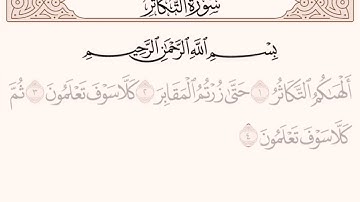 سُورَةُ التَّكَاثُرِ
بِسْمِ اللَّهِ الرَّحْمَٰنِ الرَّحِيمِ
أَلْهَىٰكُمُ التَّكَاثُرُ ١ حَتَّىٰ زُرْتُمُ الْمَقَابِرَ ٢ كَلَّا سَوْفَ تَعْلَمُونَ ٣ ثُمَّ
كَلَّا سَوْفَ تَعْلَمُونَ ٤